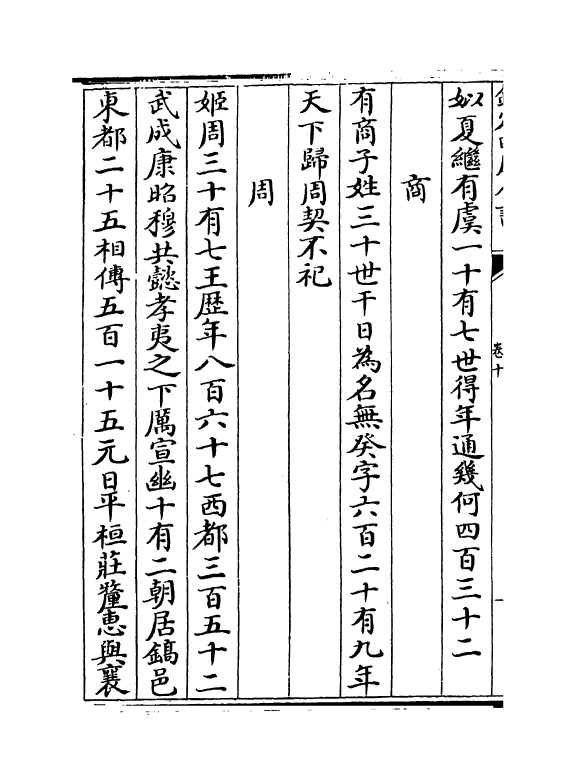 姒夏繼有虞一十有七世得年通幾何四百三十二
商
有商子姓三十世干日為名無癸字六百二十有九年
天下歸周契不祀
周
姬周三十有七王歴年八百六十七西都三百五十二
武成康昭穆共懿孝夷之下厲宣幽十有二朝居鎬邑
東都二十五相傳五百一十五元日平桓莊釐恵與襄
卷十